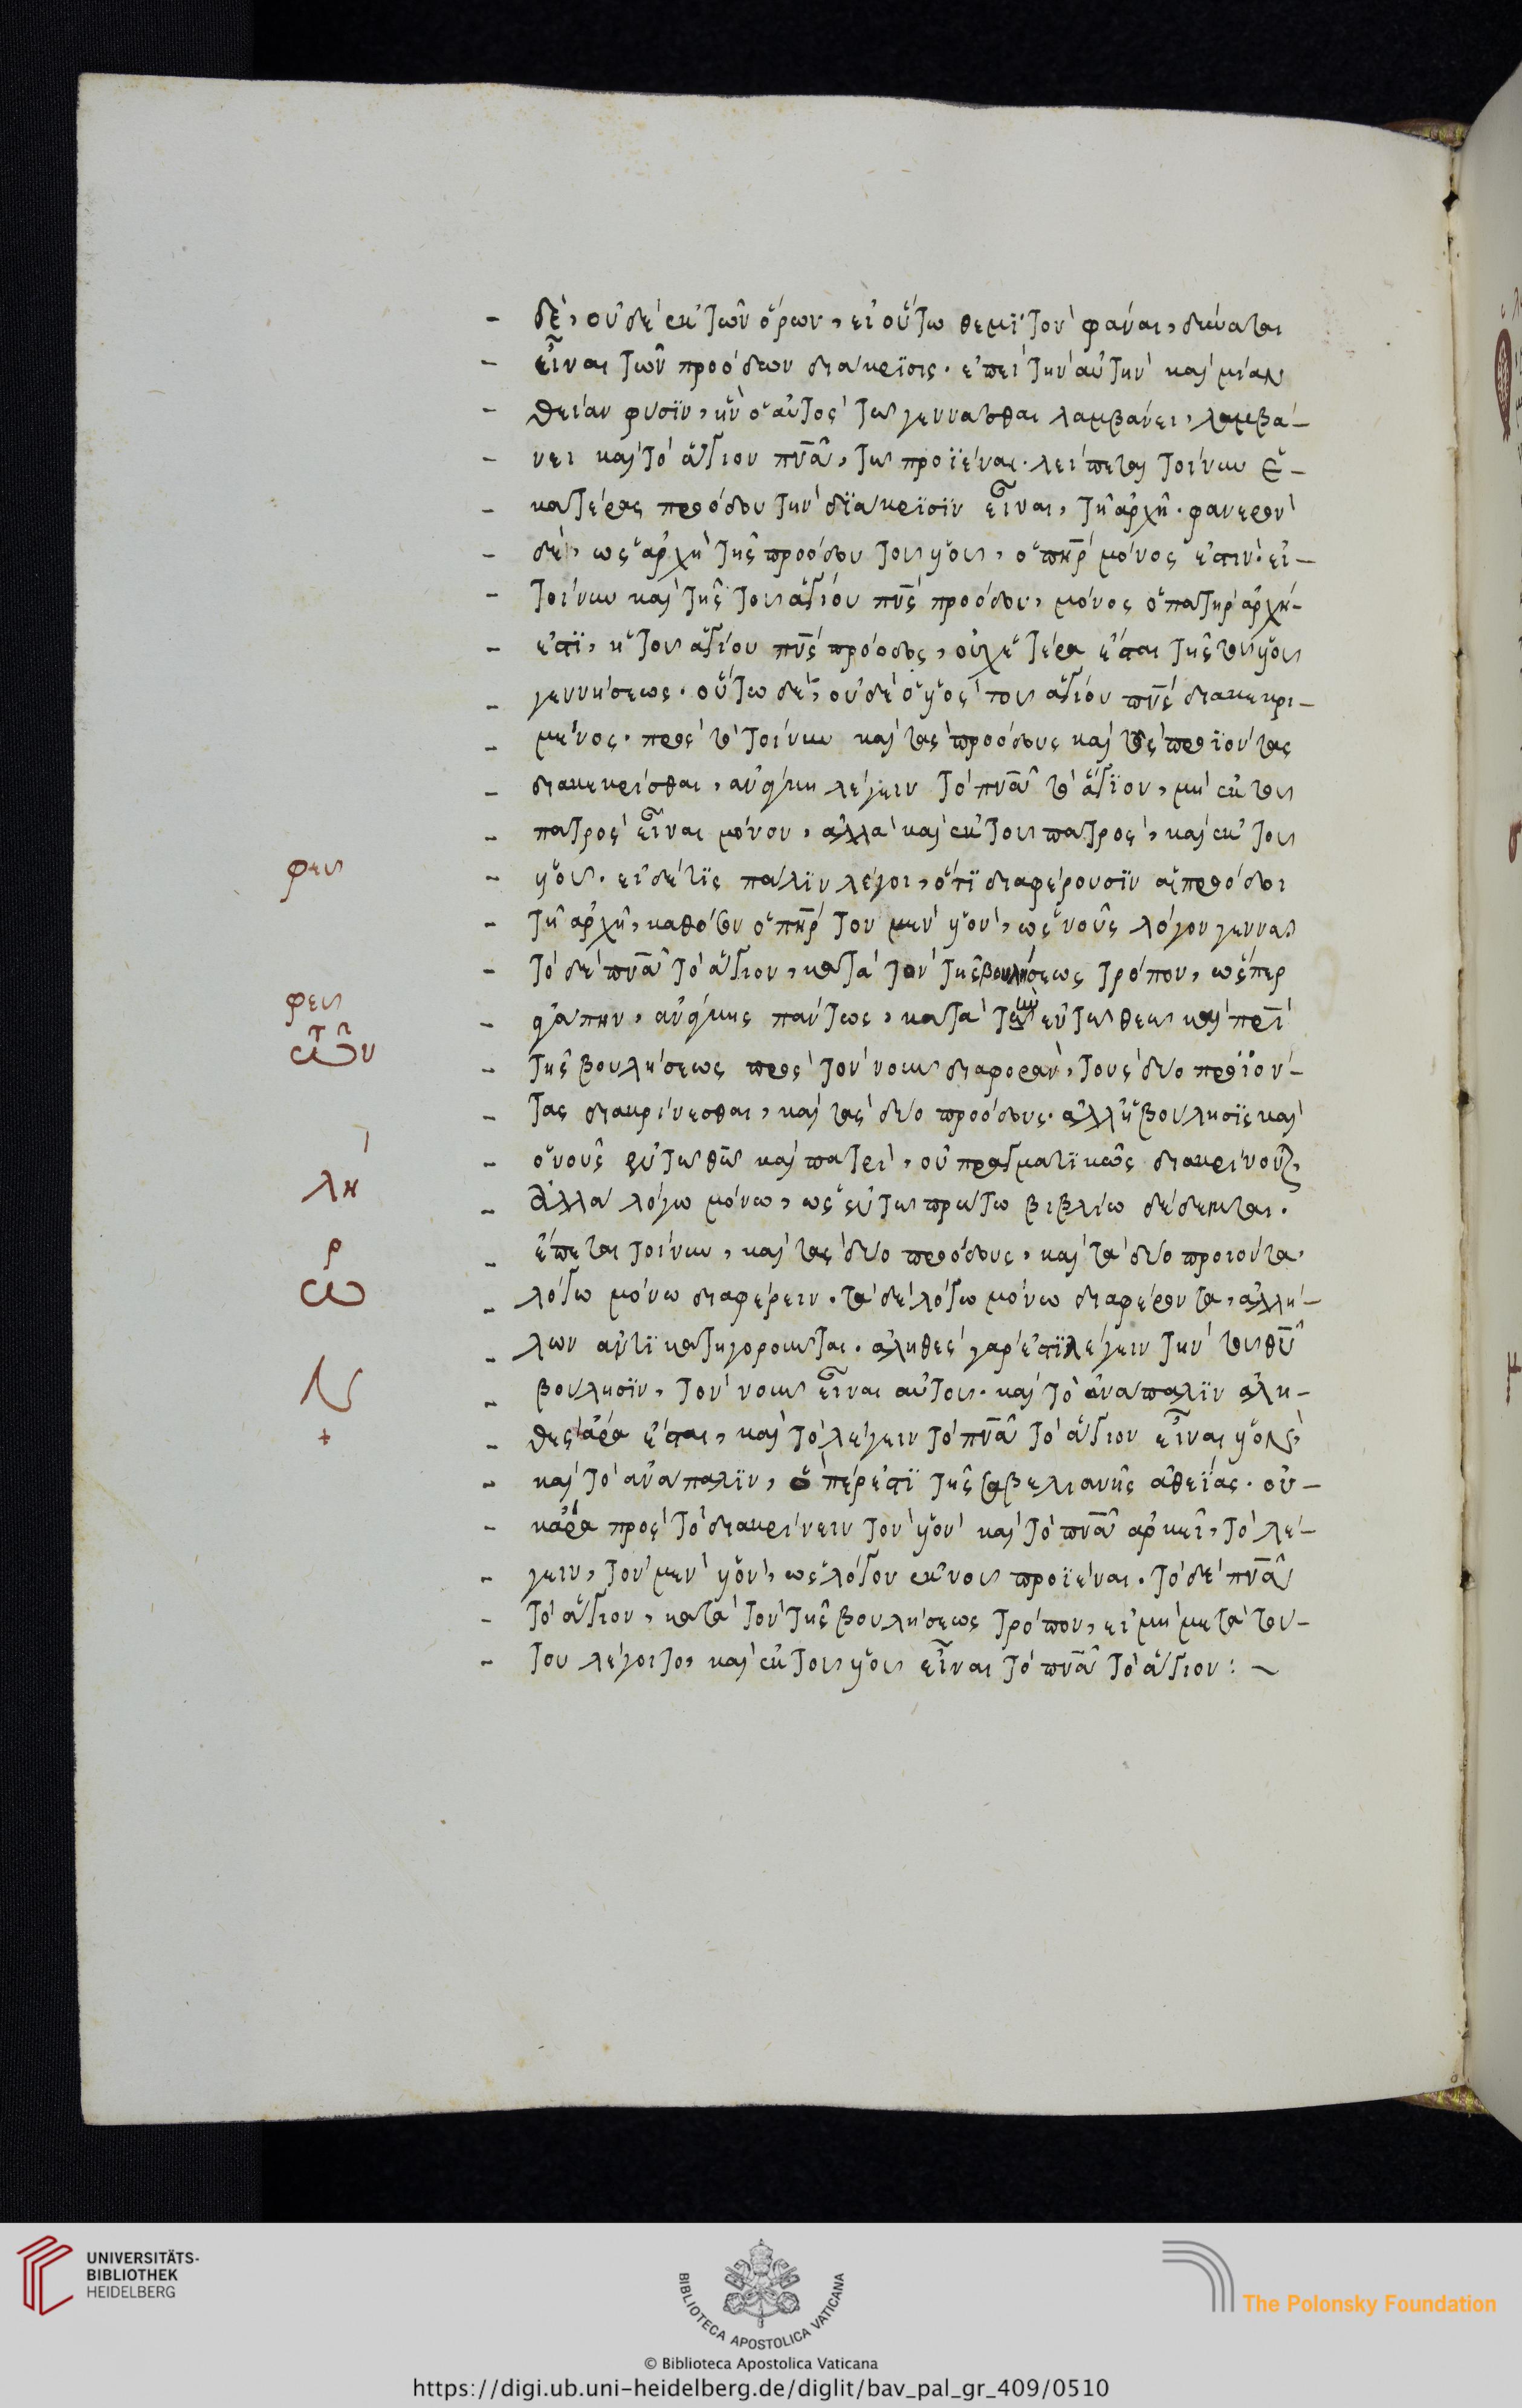 - δὲ, οὐδὲ ἐκ τῶν ὅρων, εἰ οὕτω θεμιτὸν φάναι, δύναται
- εἶναι τῶν προόδων διάκρισις. ἐπεὶ τὴν αὐτὴν καὶ μίαν
- θείαν φύσϊν, ἣν ὁ αὐτὸς τῷ γεννᾶσθαι λαμβάνει, λαμβά-
- νει καὶ τὸ ἅγιον πνᾶ, τῷ προϊέναι. λείπεται τοίνυν ἑ-
- κατέρας προόδου τὴν διάκρισϊν εἶναι, τῇ ἀρχῇ. φανερὸν
- δὲ, ὡς ἀρχὴ τῆς προόδου τοῦ υἱοῦ, ὁ πηρ μόνος ἐστιν. εἰ-
- τοίνυν καὶ τῆς τοῦ ἁγίου πνς προόδου, μόνος ὁ πατὴρ ἀρχή-
- ἐστϊ, ἡ τοῦ ἁγίου πνς πρόοδος, οὐχ ἑτέρα ἔσται τῆς τοῦ υἱοῦ
- γεννήσεως. οὕτω δὲ, οὐδὲ ὁ υἱὸς τοῦ ἁγίου πνς διακεκρι-
- μένος. πρὸς τὸ τοίνυν καὶ τὰς προόδους καὶ τοὺς προϊόντας
- διακεκρίσθαι, ἀνάγκη λέγειν τὸ πνᾶ τὸ ἅγϊον, μὴ ἐκ τοῦ
- πατρὸς εἶναι μόνον, ἀλλὰ καὶ ἐκ τοῦ πατρὸς, καὶ ἐκ τοῦ
φευ - υἱοῦ. εἰ δέ τϊς πάλϊν λέγοι, ὅτϊ διαφέρουσϊν αἱ πρόοδοι
- τῇ ἀρχῇ, καθόσον ὁ πηρ τὸν μὲν υἱὸν, ὡς νοῦς λόγον γεννᾶ
- τὸ δὲ πνᾶ τὸ ἅγιον, κατὰ τὸν τῆς βουλήσεως τρόπον, ὥσπερ
φευ - ἀγάπην, ἀνάγκης πάντως, κατὰ τὴν ἐν τῷ θεῷ καὶ πρι
τῶν - τῆς βουλήσεως πρὸς τὸν νοῦν διαφορὰν, τοὺς δύο προϊόν-
- τας διακρίνεσθαι, καὶ τὰς δύο προόδους. ἀλλ' ἡ βούλησϊς καὶ
λη - ὁ νοῦς ἐν τῷ θῶ καὶ πατρὶ, οὐ πραγματϊκῶς διακρίνονται,
- ἀλλὰ λόγω μόνω, ὡς ἐν τῷ πρώτω βιβλίω δέδεικται.
- ἕπεται τοίνυν, καὶ τὰς δύο προόδους, καὶ τὰ δύο προιόντα,
ωρ - λόγω μόνω διαφέρειν. τὰ δὲ λόγω μόνω διαφέροντα, ἀλλή-
- λων ἀντϊκατηγοροῦνται. ἀληθὲς γάρ ἐστϊ λέγειν τὴν τοῦ θῦ
- βούλησϊν, τὸν νοῦν εἶναι αὐτοῦ. καὶ τὸ ἀνάπαλϊν ἀλη-
+ - θὲς ἄρα ἔσται, καὶ τὸ λέγειν τὸ πνᾶ τὸ ἅγιον εἶναι υἱὸν,
- καὶ τὸ ἀνάπαλϊν, ὅπέρ ἐστϊ τῆς σαβελιανῆς ἀθεΐας. οὐ-
- κ ἄρα πρὸς τὸ διακρίνειν τὸν υἱὸν καὶ τὸ πνᾶ ἀρκεῖ, τὸ λέ-
- γειν, τὸν μὲν υἱὸν, ὡς λόγον ἐκ νοῦ προϊέναι. τὸ δὲ πνᾶ
- τὸ ἅγιον, κατὰ τὸν τῆς βουλήσεως τρόπον, εἰ μὴ μετὰ τού-
- του λέγοιτο, καὶ ἐκ τοῦ υἱοῦ εἶναι τὸ πνᾶ τὸ ἅγιον: ~
UNIVERSITÄTS-
BIBLIOTHEK
HEIDELBERG
BIBLIOTECA APOSTOLICA VATICANA
The Polonsky Foundation
© Biblioteca Apostolica Vaticana
https://digi.ub.uni-heidelberg.de/diglit/bav_pal_gr_409/0510